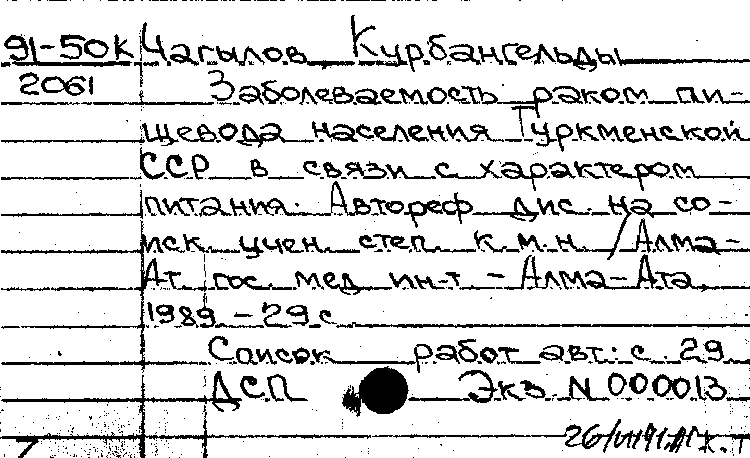 91-50к Чагылов, Курбангельды
2061 Заболеваемость раком пи-
щевода населения Туркменской
ССР в связи с характером
питания. Автореф. дис. на со-
иск. учен. степ. к.м.н. /Алма-
Ат. гос. мед. ин-т. - Алма-Ата,
1989. - 29 с.
Список работ авт.: с. 29
ДСП Экз. N 000013